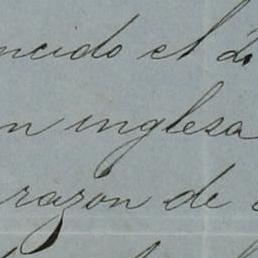 ncido el
n inglesa
razón de